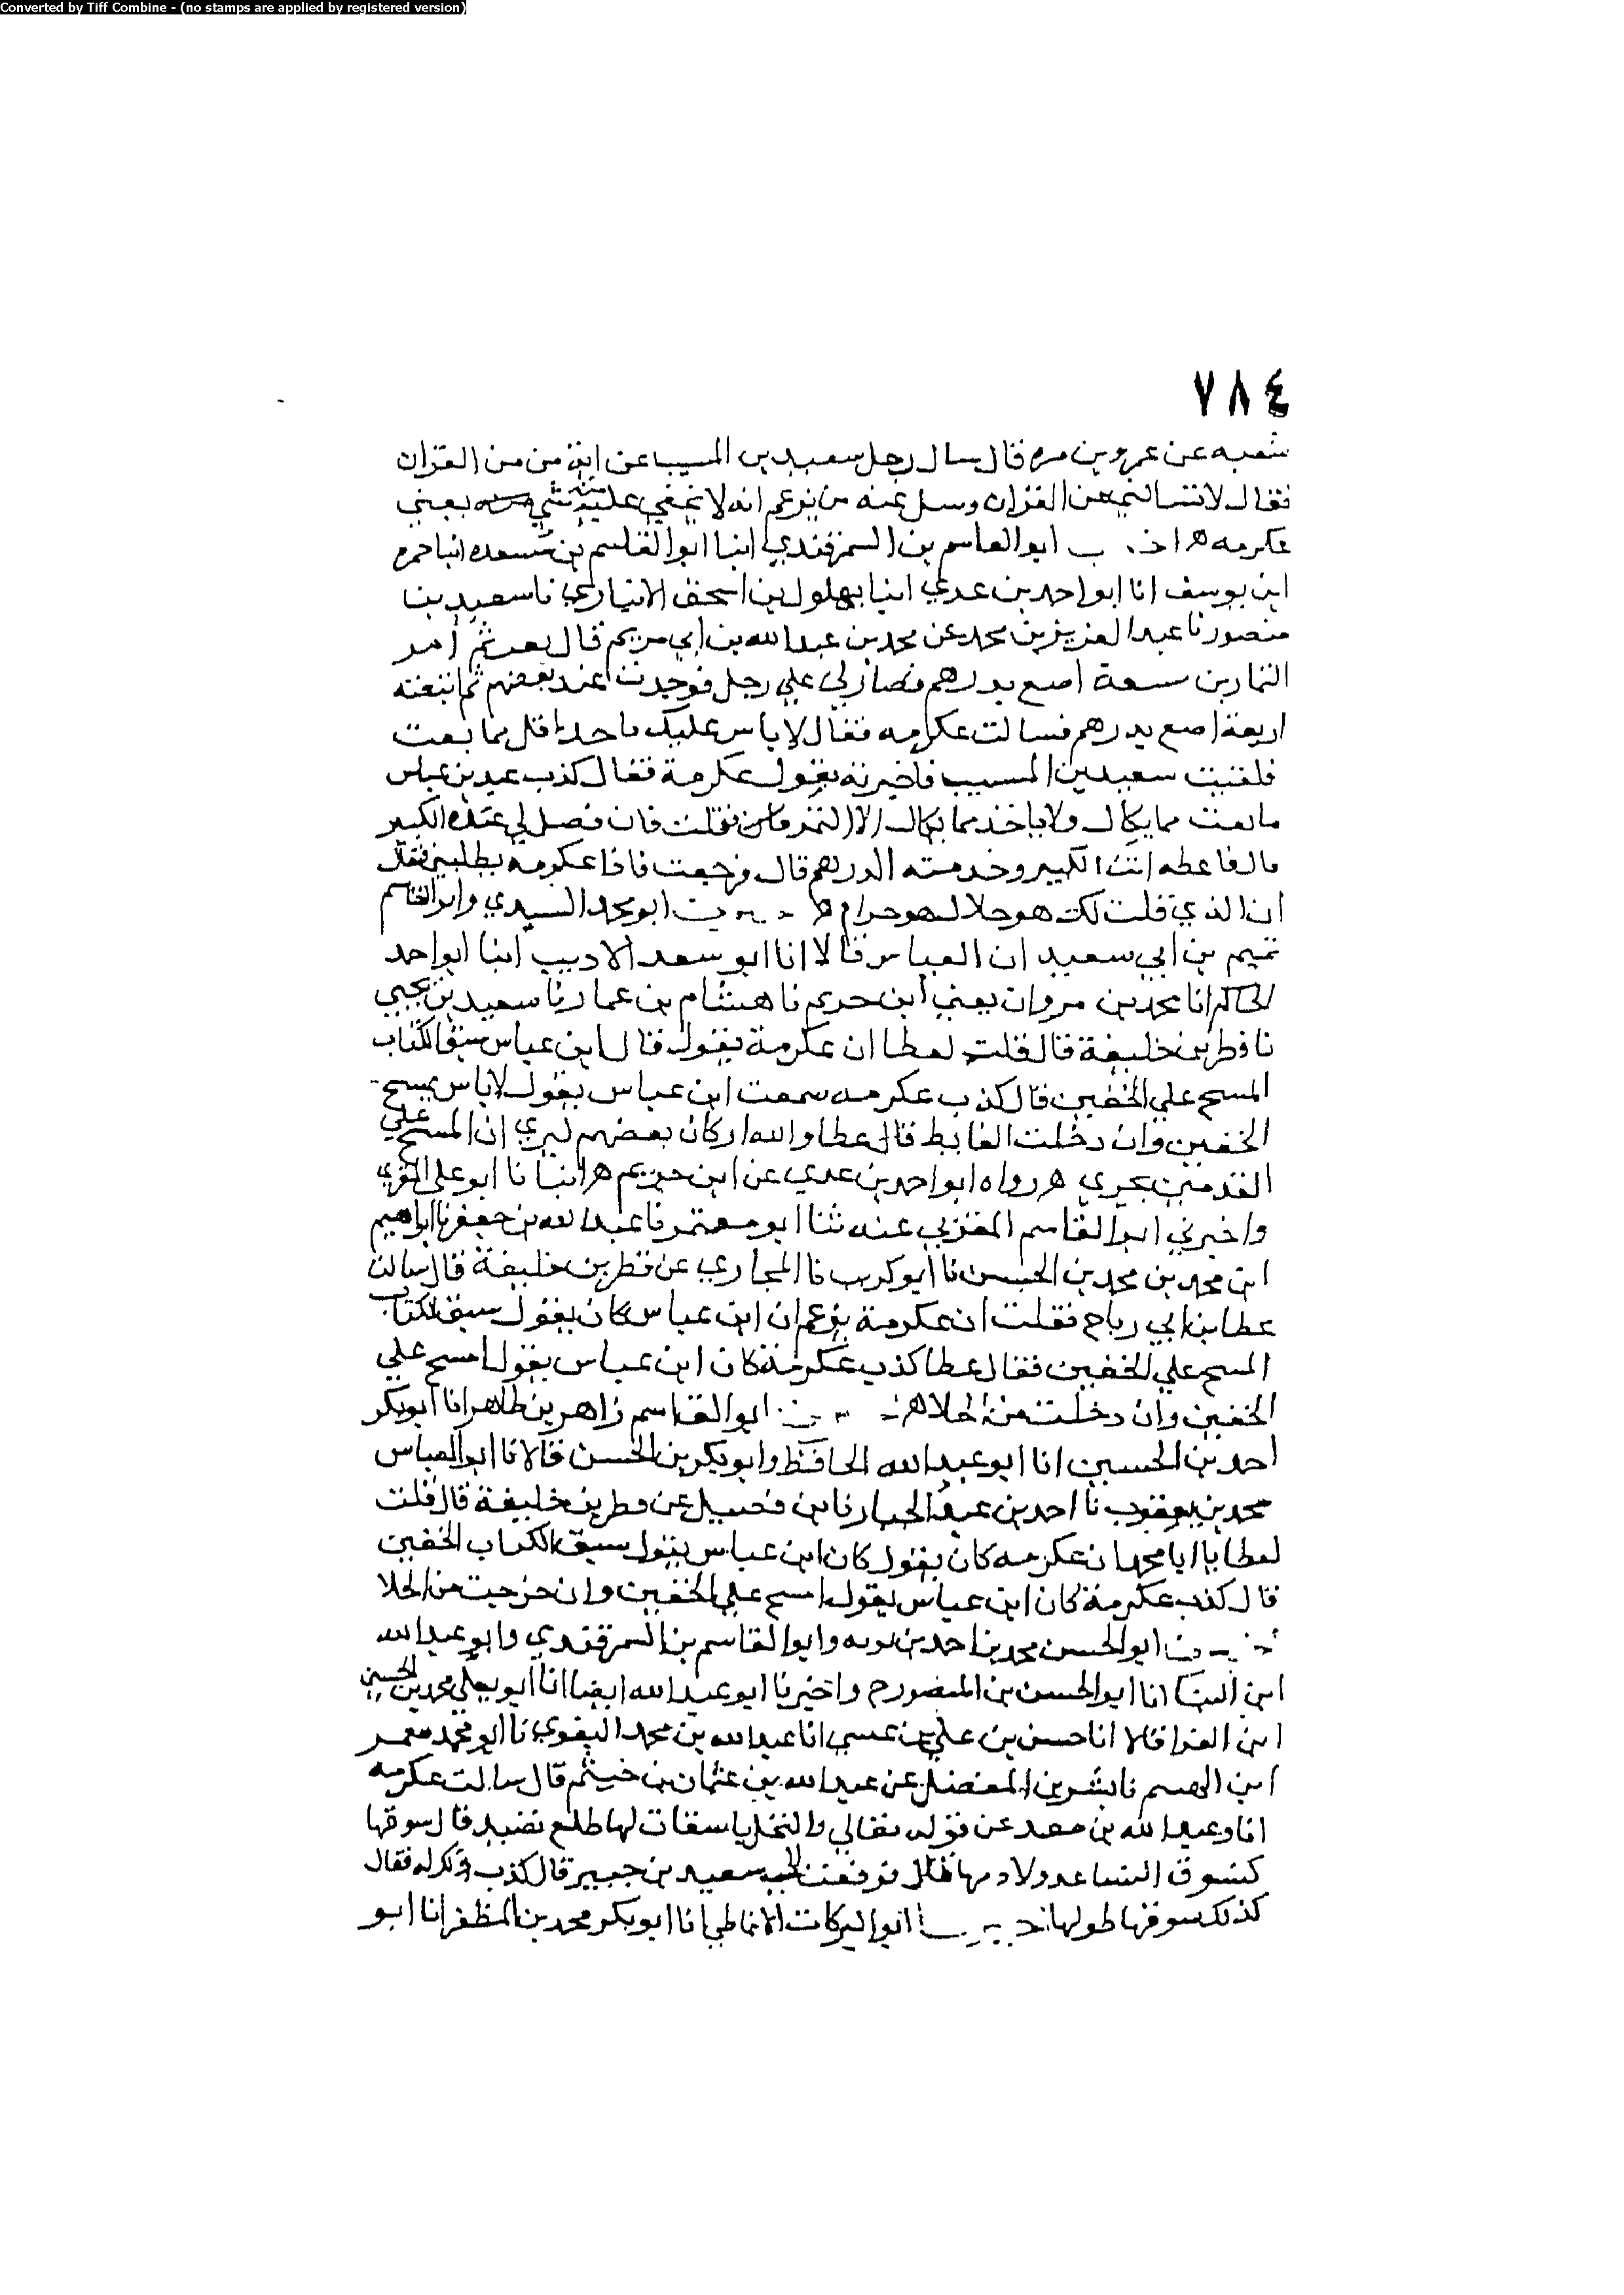 Converted by Tiff Combine - (no stamps are applied by registered version)
٧٨٤
شعبه عن عمرو بن مره قال سال رجل سعيد بن المسيب عن اية من من القران
فقال لا تسالني عن القران وسل عنه من يزعم انه لا يخفي عليه منه شي يعني
عكرمه ه ابو القاسم بن السمرقندي انبا ابو القاسم بن مسعده انبا حمزه
ابن يوسف انا ابو احمد بن عدي انبا بهلول بن اسحق الانباري نا سعيد بن
منصور نا عبد العزيز بن محمد عن محمد بن عبد الله بن ابي مريم قال بعت تمرا من
التمارين سبعة اصع بدرهم فصار لي علي رجل فوجدت عند بعضهم تمرا تبيعه
اربعة اصع بدرهم فسالت عكرمه فقال لا باس عليك ناخذ اقل مما بعت
فلقيت سعيد بن المسيب فاخبرته بقول عكرمة فقال كذب عبد بن عباس
ما بعت مما يكال ولا ياخذ مما يكال الا التمر فقلت فان فضل لي عنده الكبير
قال فاعطه انت الكبير وخذ منه الدرهم قال فرجعت فاذا عكرمه يطلبني فقال
ان الذي قلت لك هو حلال هو حرام ه ابو محمد السيدي وابو القاسم
تميم بن ابي سعيد ابن العباس قالا انا ابو سعد الاديب انبا ابو احمد
الحاكم انا محمد بن مروان يعني ابن خريم نا هشام بن عمار نا سعيد بن يحيي
نا فطر بن خليفة قال قلت لعطا ان عكرمة يقول قال ابن عباس سبق الكتاب
المسح علي الخفين قال كذب عكرمه سمعت ابن عباس يقول لا باس بمسح
الخفين وان دخلت الغايط قال عطا والله ان كان بعضهم ليري ان المسح علي
القدمين يجزي ه رواه ابو احمد بن عدي عن ابن خريم ه انبانا ابو علي المقري
واخبرني ابو القاسم المغربي عنه ثنا ابو معتمر نا عبد الله بن جعفر نا ابراهيم
ابن محمد بن محمد بن الحسن نا ابو كريب نا المحاربي عن فطر بن خليفة قال سالت
عطا بن ابي رباح فقلت ان عكرمة يزعم ان ابن عباس كان يقول سبق الكتاب
المسح علي الخفين فقال عطا كذب عكرمة كان ابن عباس يقول امسح علي
الخفين وان دخلت من الخلا ه ابو القاسم زاهر بن طاهر انا ابو بكر
احمد بن الحسين انا ابو عبد الله الحافظ وابو بكر بن الحسن قالا نا ابو العباس
محمد بن يعقوب نا احمد بن عبد الجبار نا ابن فضيل عن فطر بن خليفة قال قلت
لعطا يا ابا محمد ان عكرمه كان يقول كان ابن عباس يقول سبق الكتاب الخفين
قال كذب عكرمة كان ابن عباس يقول امسح علي الخفين وان خرجت من الخلا
ابو الحسن محمد بن احمد بن توبه وابو القاسم بن السمرقندي وابو عبد الله
ابن البنا انا ابو الحسن بن المنصور ح واخبرنا ابو عبد الله ايضا انا ابو يعلي محمد بن الحسين
ابن الفرا قالا انا حسن بن علي بن عيسي انا عبد الله بن محمد البغوي نا ابو محمد معمر
ابن الهيثم نا بشر بن المفضل عن عبد الله بن عثمان بن خيثم قال سالت عكرمه
انا وعبد الله بن سعد عن قوله تعالي والنخل باسقات لها طلع نضيد قال سوقها
كسوق النساء عند ولادتها قال فرفعت الي سعيد بن جبير قال كذب وذكر له فقال
كذلك سوقها طولها ابو البركات الانماطي انا ابو بكر محمد بن المظفر انا ابو